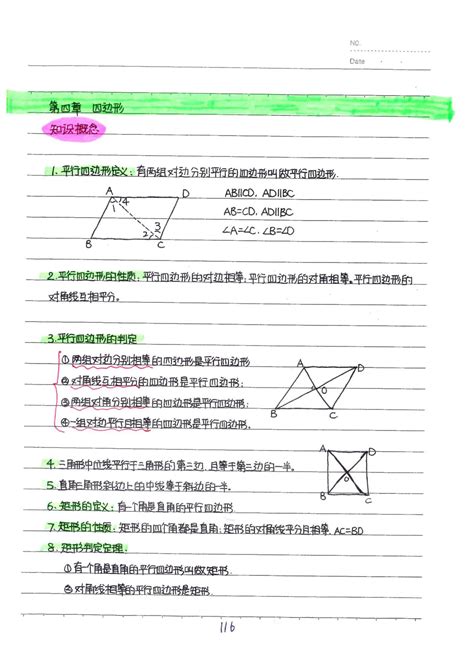 NO.
Date
第四章 四边形
知识概念
1. 平行四边形定义：有两组对边分别平行的四边形叫做平行四边形.
A
D
1
4
3
2
B
C
AB∥CD, AD∥BC
AB=CD, AD∥BC
∠A=∠C, ∠B=∠D
2. 平行四边形的性质：平行四边形的对边相等；平行四边形的对角相等。平行四边形的
对角线互相平分。
3. 平行四边形的判定
①两组对边分别相等的四边形是平行四边形
②对角线互相平分的四边形是平行四边形；
③两组对角分别相等的四边形是平行四边形；
④一组对边平行且相等的四边形是平行四边形.
A
D
O
B
C
4. 三角形中位线平行于三角形的第三边，且等于第三边的一半。
5. 直角三角形斜边上的中线等于斜边的一半。
6. 矩形的定义：有一个角是直角的平行四边形
A
D
O
B
C
7. 矩形的性质：矩形的四个角都是直角；矩形的对角线平分且相等. AC=BD
8. 矩形判定定理：
①有一个角是直角的平行四边形叫做矩形.
②对角线相等的平行四边形是矩形.
116